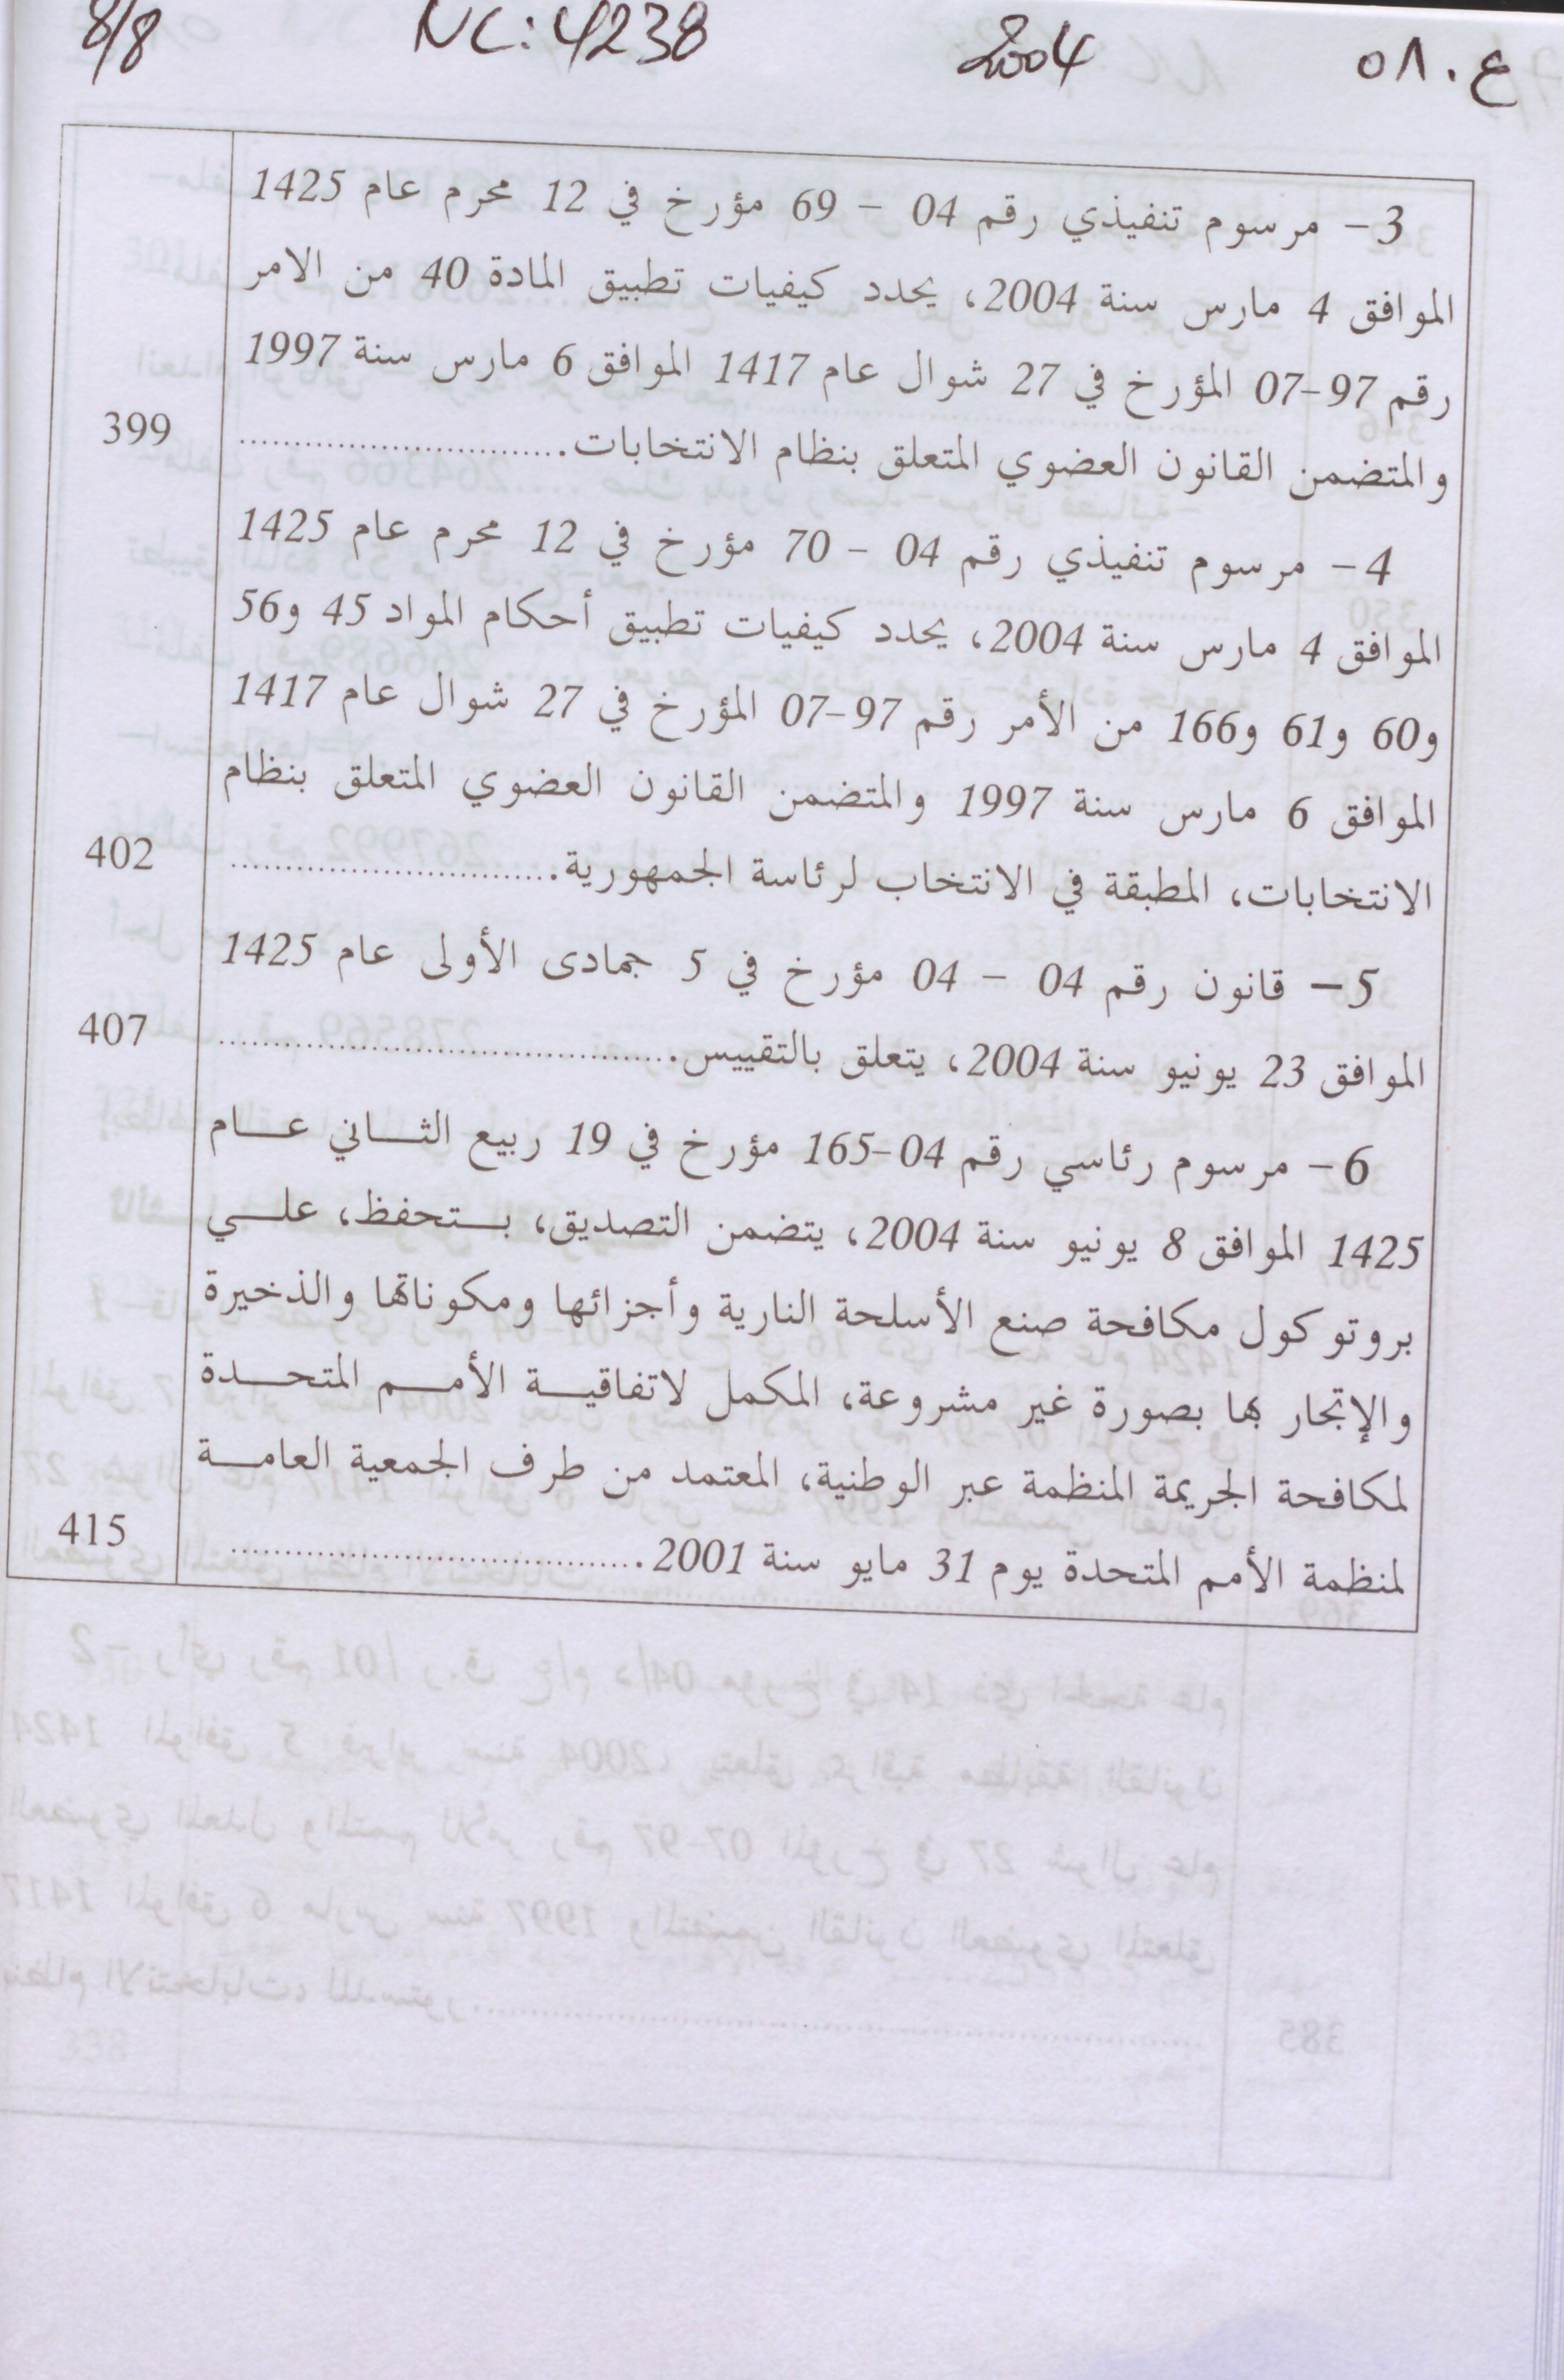 ع.٥٨ 2004 NC:4238 8/8
3- مرسوم تنفيذي رقم 04 - 69 مؤرخ في 12 محرم عام 1425
الموافق 4 مارس سنة 2004، يحدد كيفيات تطبيق المادة 40 من الامر
رقم 97-07 المؤرخ في 27 شوال عام 1417 الموافق 6 مارس سنة 1997
والمتضمن القانون العضوي المتعلق بنظام الانتخابات............................... 399
4- مرسوم تنفيذي رقم 04 - 70 مؤرخ في 12 محرم عام 1425
الموافق 4 مارس سنة 2004، يحدد كيفيات تطبيق أحكام المواد 45 و56
و60 و61 و166 من الأمر رقم 97-07 المؤرخ في 27 شوال عام 1417
الموافق 6 مارس سنة 1997 والمتضمن القانون العضوي المتعلق بنظام
الانتخابات، المطبقة في الانتخاب لرئاسة الجمهورية............................... 402
5- قانون رقم 04 - 04 مؤرخ في 5 جمادى الأولى عام 1425
الموافق 23 يونيو سنة 2004، يتعلق بالتقييس........................................... 407
6- مرسوم رئاسي رقم 04-165 مؤرخ في 19 ربيع الثـــاني عـــام
1425 الموافق 8 يونيو سنة 2004، يتضمن التصديق، بـــتحفظ، علـــي
بروتوكول مكافحة صنع الأسلحة النارية وأجزائها ومكوناتها والذخيرة
والإتجار بها بصورة غير مشروعة، المكمل لاتفاقيـــة الأمـــم المتحـــدة
لمكافحة الجريمة المنظمة عبر الوطنية، المعتمد من طرف الجمعية العامـــة
لمنظمة الأمم المتحدة يوم 31 مايو سنة 2001....................................... 415